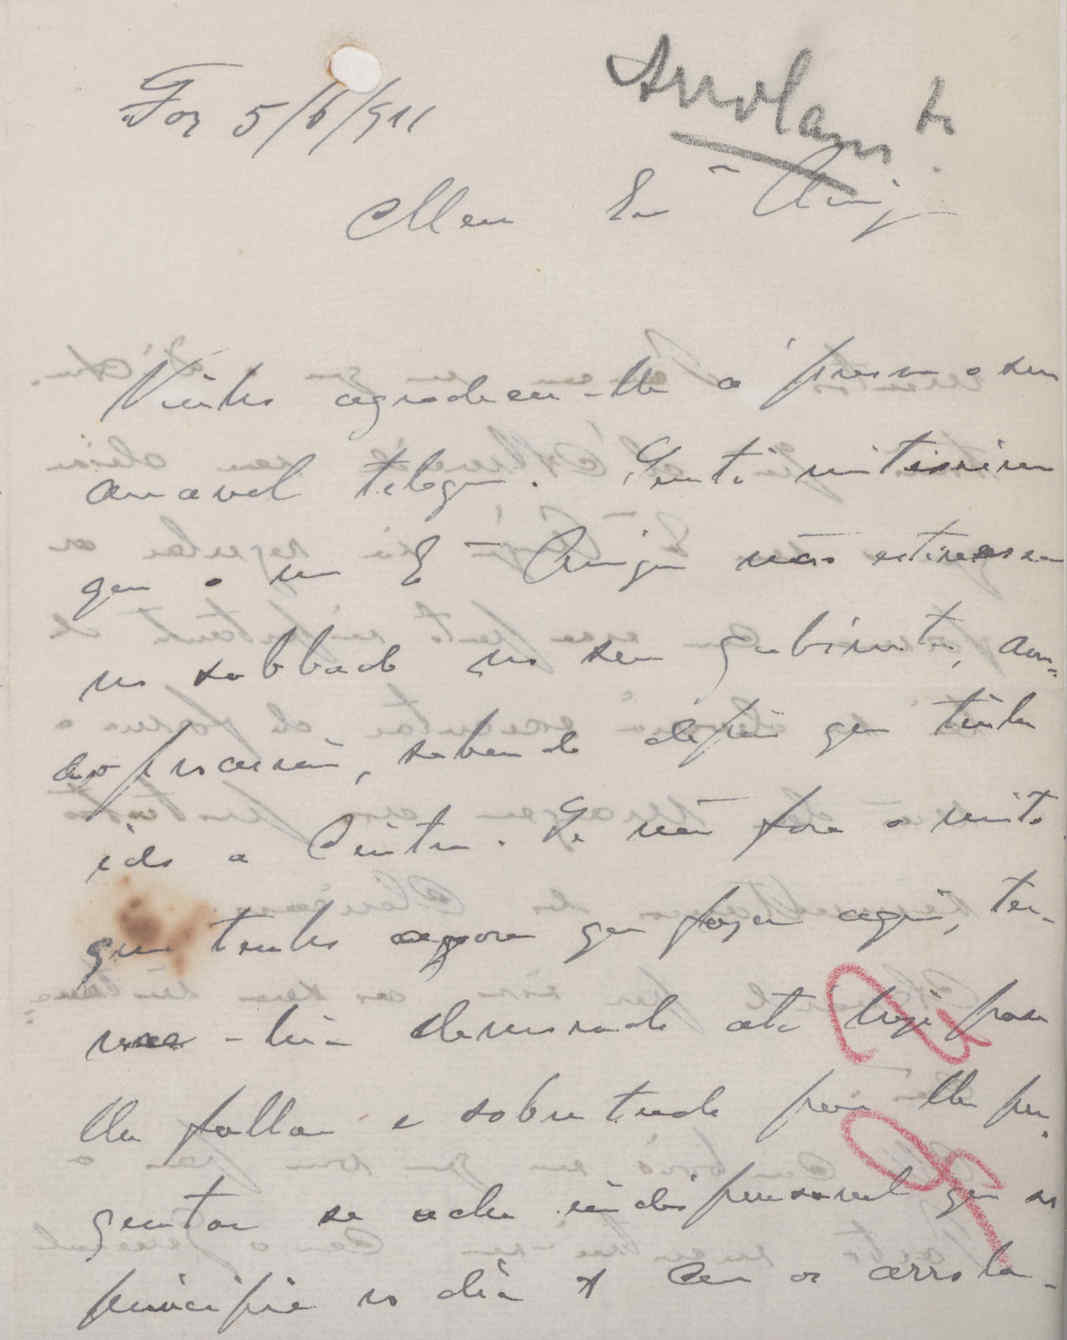 Arrolamtos
Foz 5/6/911
Meu Exmo Amigo
Venho agradecer-lhe a
amavel telegra. Senti muitissimo
que o meu Exmo Amigo não estivesse
no sabbado no seu gabinete, aon-
de o procurei, sabendo depois que tinha
ido a Cintra. Se não fora o muito
que tenho agora que fazer aqui, ter-
me-hia demorado até hoje para
lhe fallar e sobretudo para lhe per-
guntar se acha indispensavel que se
principie no dia com os arrola-